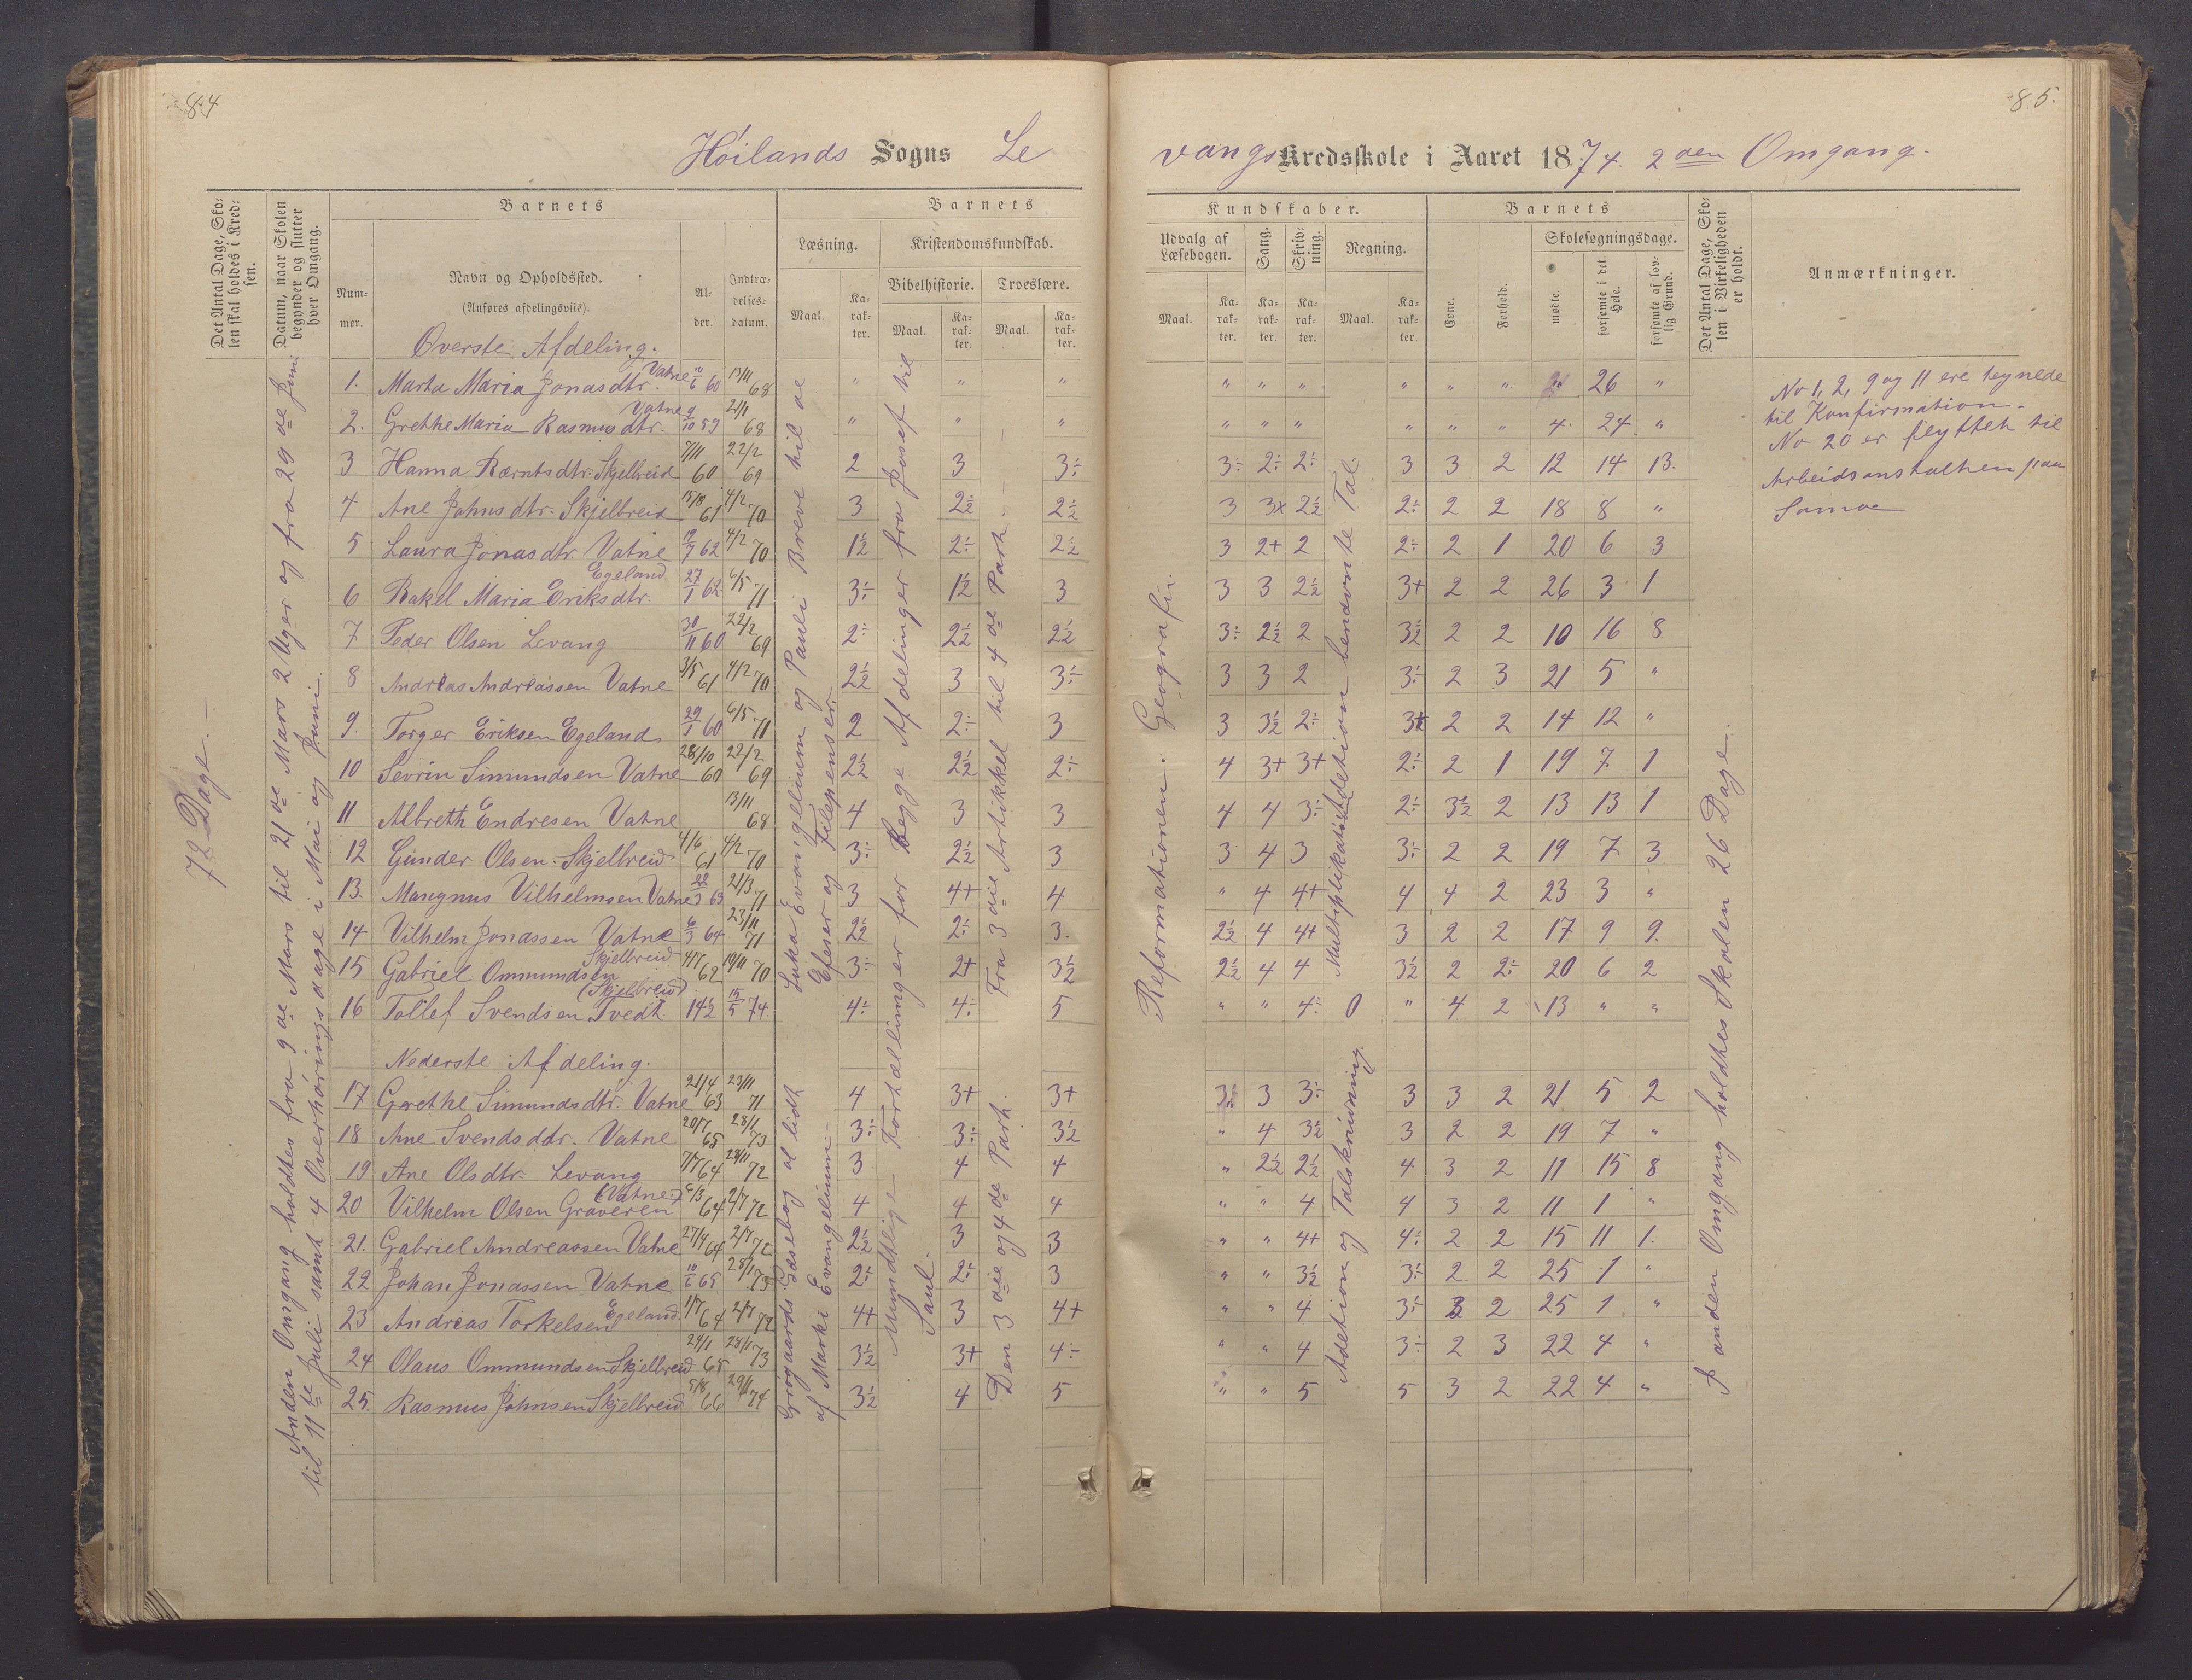 84
85.
Höilands Sogns Le
vangs Kredsskole i Aaret 1874. 2den Omgang.
Det Antal Dage, Skolen skal holdes i Kredsen.
Datum, naar Skolen begynder og slutter hver Omgang.
Barnets
Nummer.
Navn og Opholdssted.
(Anføres afdelingsviis).
Alder.
Indtrædelsesdatum.
Barnets
Læsning.
Maal.
Karakter.
Kristendomskundskab.
Bibelhistorie.
Maal.
Karakter.
Troeslære.
Maal.
Karakter.
Kundskaber.
Udvalg af Læsebogen.
Maal.
Karakter.
Sang.
Karakter.
Skrivning.
Karakter.
Regning.
Maal.
Karakter.
Barnets
Evne.
Forhold.
Skolesøgningsdage.
mødte.
forsømte i det Hele.
forsømte af lovlig Grund.
Det Antal Dage, Skolen i Virkeligheden er holdt.
Anmærkninger.
72 Dage.
Anden Omgang holdtes fra 9de Mars til 21de Mars 2 Uger og fra 29de Juni
til 11te Juli samt 4 Overhöringsdage i Mai og Juni.
Luka Evangelium og Pauli Breve til de
Efeser og Filepenser.
Grøgaards Læsebog og lidt
af Marki Evangelium.
Mundtlige Fortællinger for Begge Afdelinger fra Josef til
Saul.
Fra 3die Artikkel til 4de Part.
Den 3die og 4de Part.
Reformationen. Geografi.
Multiplikation Adetion benævnte Tal.
Adetion og Talskrivning.
I anden Omgang holdtes Skolen 26 Dage.
Øverste Afdeling.
1. Marta Maria Jonasdtr. Vatne 10/6 60 13/11 68 " " " " " " " " " 26 "
2. Grethe Maria Rasmusdtr. Vatne 9/10 59 21/1 68 " " " " " " " " " 4 24 "
3 Hanna Bærntsdtr. Skjelbreid 7/11 60 22/2 69 2 3 3÷ 3÷ 2÷ 2÷ 3 3 2 12 14 13.
4 Ane Johnsdtr. Skjelbreid 15/10 61 4/2 70 3 2½ 2½ 3 3x 2½ 2÷ 2 2 18 8 "
5 Laura Jonasdtr. Vatne 12/7 62 4/2 70 1½ 2÷ 2½ 3 2+ 2 2÷ 2 1 20 6 3
6 Rakel Maria Eriksdtr. Egeland 27/1 62 6/5 71 3÷ 1½ 3 3 3 2½ 3+ 2 2 26 3 1
7 Peder Olsen Levang 30/11 60 22/2 69 2÷ 2½ 2½ 3÷ 2½ 2 3½ 2 2 10 16 8
8 Andreas Andreassen Vatne 3/5 61 4/2 70 2½ 3 3÷ 3 3 2 3÷ 2 3 21 5 "
9. Torger Eriksen Egeland 29/1 60 6/5 71 2 2÷ 3 3 3½ 2÷ 3+ 2 2 14 12 "
10 Sevrin Simundsen Vatne 28/10 60 22/2 69 2½ 2½ 2÷ 4 3+ 3+ 2÷ 2 1 19 7 1
11 Albreth Endresen Vatne 13/11 68 4 3 3 4 4 3÷ 2÷ 3½ 2 13 13 1
12 Gunder Olsen Skjelbreid 4/6 61 4/2 70 3÷ 2½ 3 3 4 3 3÷ 2 2 19 7 3
13. Mangnus Vilhelmsen Vatne 22/3 63 21/3 71 3 4+ 4 " 4 4+ 4 4 2 23 3 "
14 Vilhelm Jonassen Vatne 6/3 64 23/11 71 2½ 2÷ 3. 2½ 4 4+ 3 2 2 17 9 9.
15 Gabriel Ommundsen Skjelbreid 4/7 62 19/11 70 3÷ 2+ 3½ 2½ 4 4 3½ 2 2÷ 20 6 2
16 Tollef Svendsen Tvedt (Skjelbreid) 14½ 15/5 74 4÷ 4÷ 5 " " 4÷ 0 " 4 2 13 " "
Nederste Afdeling.
17 Grethe Simundsdtr. Vatne 21/4 63 23/11 71 4 3+ 3+ 3÷ 3 3÷ 3 3 2 21 5 2
18 Ane Svendsddr. Vatne 20/7 65 28/1 73 3÷ 3÷ 3½ " 4 3½ 3 2 2 19 7 "
19 Ane Olsdtr. Levang 7/7 64 28/11 72 3 4 4 " 2½ 2½ 4 3 2 11 15 8
20 Vilhelm Olsen Graveren (Vatne) 6/3 64 2/7 72 4 4 4 " " 4 4 3 2 11 1 "
21. Gabriel Andreassen Vatne 27/4 64 2/7 72 2½ 3 3 " " 4+ 4÷ 2 2 15 11 1.
22 Johan Jonassen Vatne 10/6 65 28/1 73 2÷ 2÷ 3 " " 3½ 3÷ 2 2 25 1 "
23 Andreas Torkelsen Egeland. 1/7 64 2/7 72 4+ 3 4+ " " 4 3÷ 3 2 25 1 "
24 Olaus Ommundsen Skjelbreid 24/1 65 28/1 73 3½ 3+ 4÷ " " 4 3÷ 2 3 22 4 "
25. Rasmus Johnsen Skjelbreid 5/8 66 29/1 74 3½ 4 5 " " 5 5 3 2 22 4 "
No 1, 2, 9 og 11 ere tegnede
til Konfirmation.
No 20 er flyttet til
Arbeidsanstalten paa